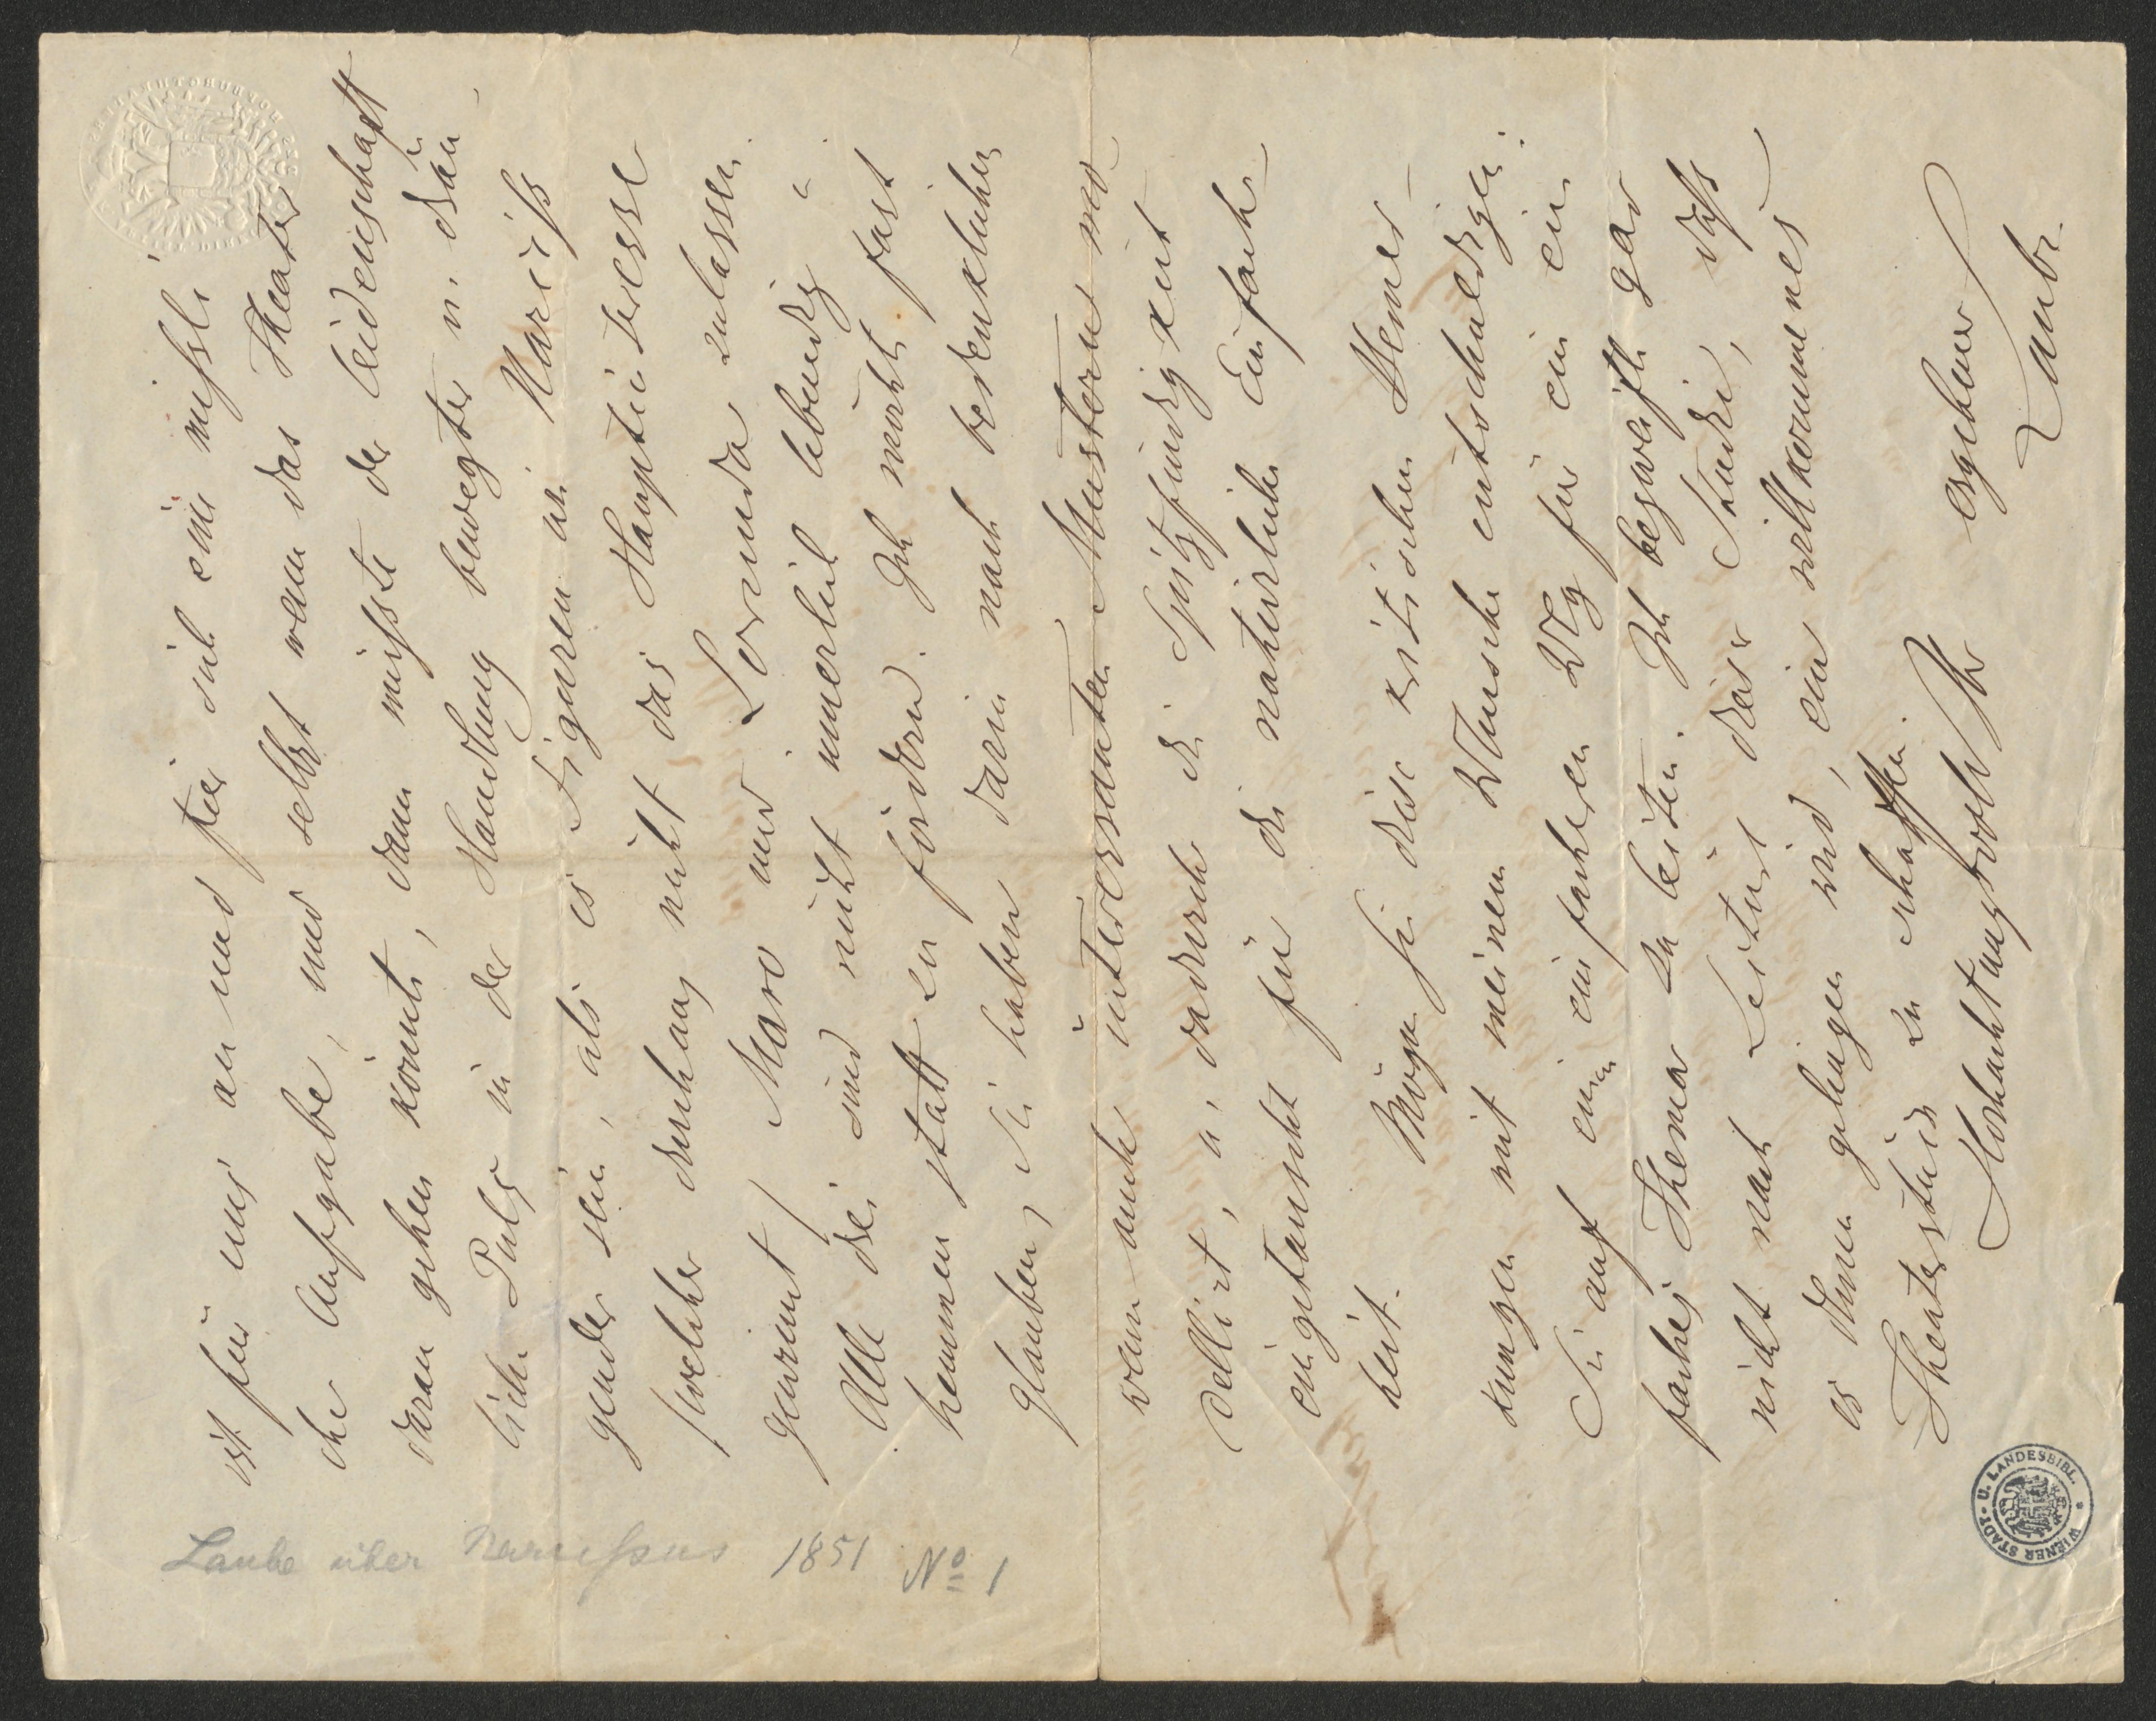 ist für uns an und für sich eine mißli
che Aufgabe, und selbst wenn das Theater
daran gehen könnte, dann müßte der leidenschaft
liche Puls in der Handlung bewegter u. drän
gender sein, als es Figuren wie Narciß
welcher durchaus nicht das Hauptinteresse
gewinnt, Maro und Lorinda zulassen.
Alle drei sind nicht innerlich lebendig u
hemmen statt zu fördern. Ich möchte fast
glauben, Sie haben darin nach bedenklichen
wenn auch interessanten Mustern mo
dellirt, u. dadurch die Spitzfindigkeit
eingetauscht für die natürliche Einfach
heit.
Mögen Sie diese kritischen Bemer
kungen mit meinem Wunsche entschuldigen:
Sie auf einen einfacheren Weg für ein ein
faches Thema zu leiten. Ich bezweifle gar
nicht nach Lectüre dieser Studie, daß
es Ihnen gelingen wird, ein willkommnes
Theaterstück zu schaffen.
Hochachtungsvoll Ihr
ergebener
Laube
Laube über Narcissus 1851 No 1
WIENER STADT- U. LANDESBIBL.